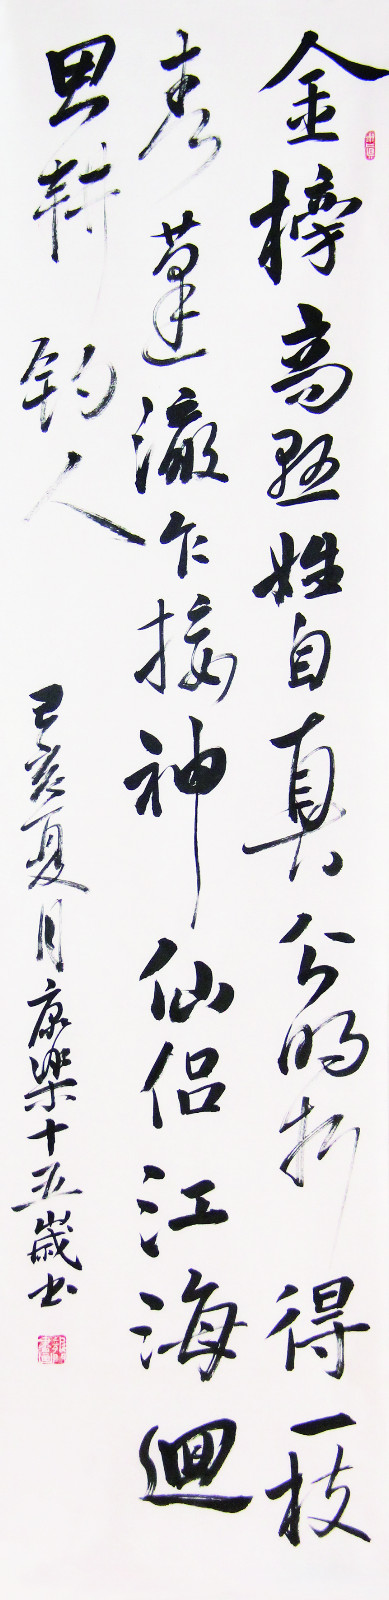 金榜高懸姓自真分明折得一枝
春蓬瀛乍接神仙侣江海迴
思耕釣人
己亥夏月康樂十五歲书